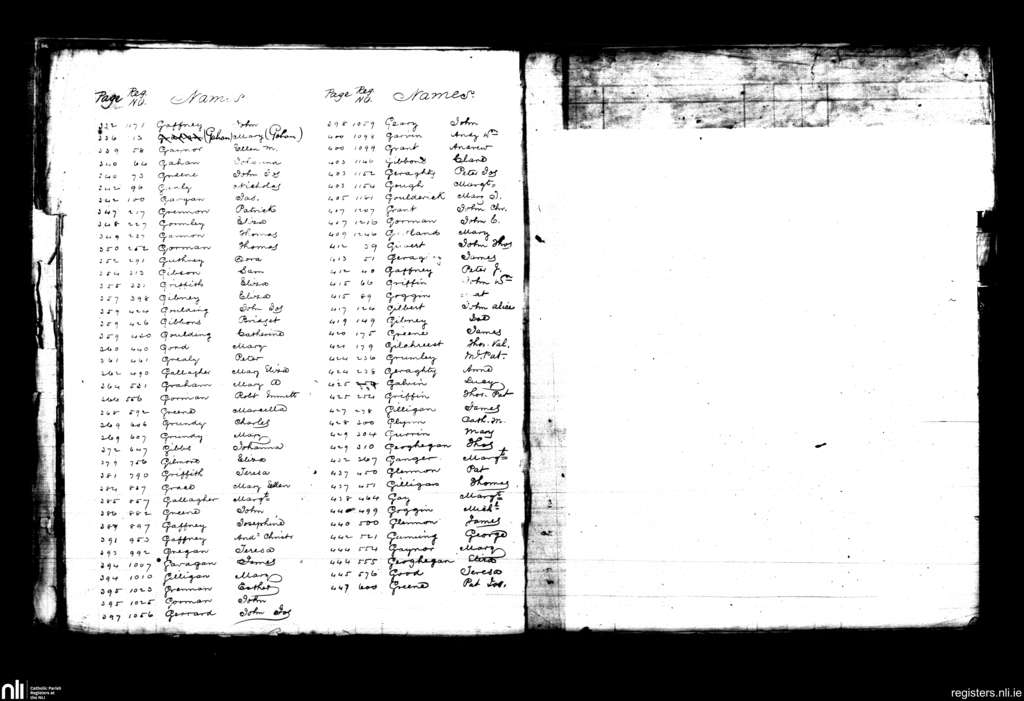 Page Reg. No. Names
322 1171 Gaffney John
336 13 (Gahan) Mary (Gahan)
339 58 Gaynor Ellen M.
340 64 Gahan Johanna
340 73 Greene John Jos
342 96 Nicholas
342 100 Jas.
347 217 Grennon Patrick
348 227 Gormley Eliza
349 237 Gannon Thomas
350 252 Gorman Thomas
352 291 Dora
354 313 Gibson Sam
355 331 Griffith Eliza
357 398 Gibney Eliza
359 424 Goulding John Jos
359 426 Gibbons Bridget
359 430 Goulding Catherine
360 440 Good Mary
361 461 Grealy Peter
362 490 Gallagher Mary Eliza
364 531 Graham Mary A
366 556 Gorman Robt Emmett
368 592 Greene Marcella
369 606 Grundy Charles
369 607 Grundy Mary
372 647 Gibbs Johanna
379 756 Gilmore Eliza
381 790 Griffith Teresa
384 837 Grace Mary Ellen
385 857 Gallagher Margt
386 882 Greene John
387 897 Gaffney Josephine
391 953 Gaffney And Christr
393 992 Gregan Teresa
394 1007 Garagan James
394 1010 Gilligan Mary
395 1023 Brennan Esther
395 1025 Gorman John
397 1056 Gerrard John Jos
Page Reg. No. Names.
398 1059 Geary John
400 1098 Garvin Andy Wm
400 1099 Grant Andrew
403 1146 Gibbons Clare
403 1152 Geraghty Peter Jos
403 1154 Gough Margt.
405 1161 Goulderick Mary J.
407 1207 Grant John Chr.
407 1216 Gorman John C.
409 1246 Mary
412 39 John Thos
413 51 James
412 40 Gaffney Peter J.
415 66 Griffin John Wm
415 69 Goggin
417 124 Gilbert John
419 149 Gibney
420 175 Greene James
421 179 Gilchriest Thos. Val.
424 236 Grumley Pat.
424 238 Geraghty Anne
425 Galvin Lucy
425 254 Griffin Thos. Pat
427 278 Gilligan James
428 300 Glynn Cath. M.
429 304 Mary
429 310 Geoghegan Thos
432 367 Ganger Margt
437 450 Glennon Pat
437 451 Gilligan Thomas
438 464 Gay Margt
440 499 Goggin Michl
440 500 Glennon James
442 521 Gunning George
444 554 Gaynor Mary
444 555 Geoghegan Eliza
445 576 Good Teresa
447 600 Greene Pat Jos.
nli Catholic Parish Registers at the NLI
registers.nli.ie